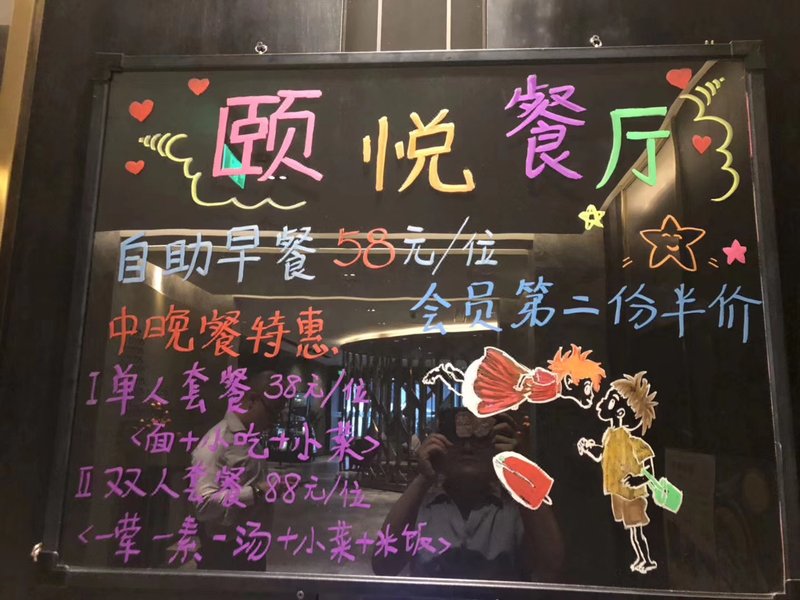 颐悦餐厅
自助早餐58元/位
会员第二份半价
中晚餐特惠.
I单人套餐 38元/位
<面+小吃+小菜>
II双人套餐 88元/位
<一荤一素一汤+小菜+米饭>